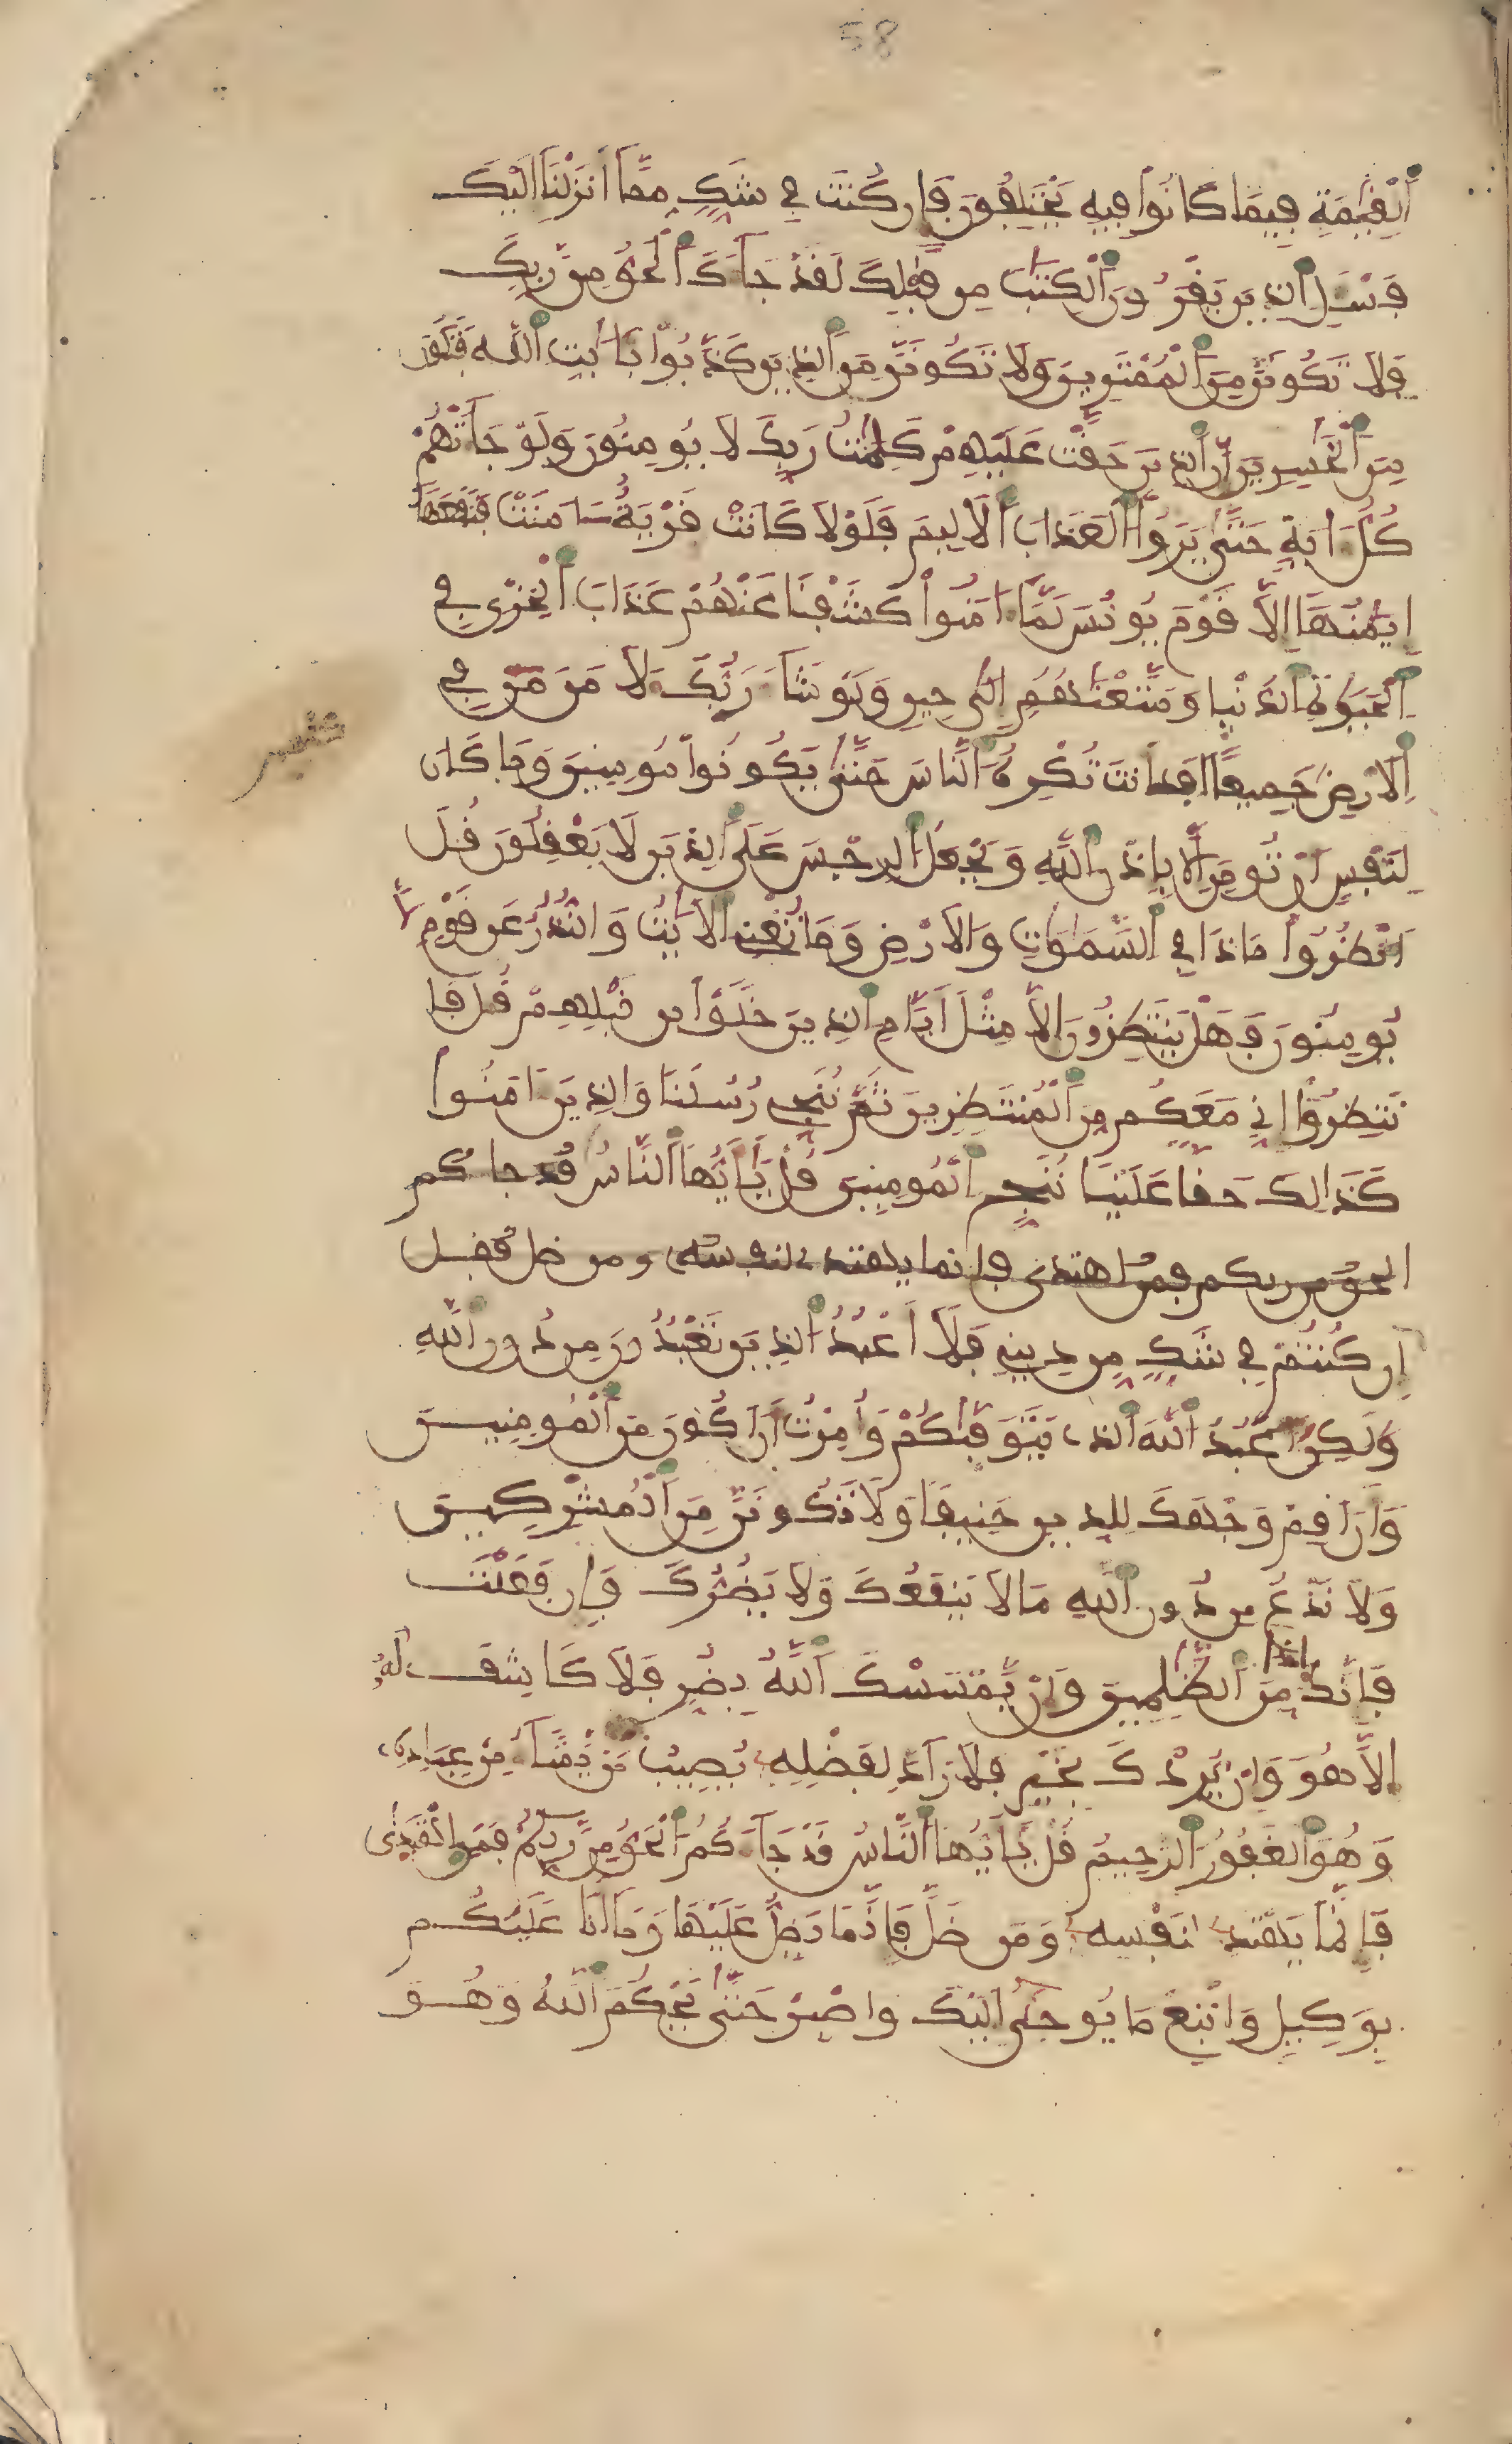 58
اَ۬لْقِيَٰمَةِ فِيمَا كَانُواْ فِيهِ يَخْتَلِفُونَ فَإِن كُنتَ فِے شَكّٖ مِّمَّآ أَنزَلْنَآ إِلَيْكَ
فَسْـَٔلِ اِ۬لذِينَ يَقْرَءُونَ اَ۬لْكِتَٰبَ مِن قَبْلِكَ لَقَدْ جَآءَكَ اَ۬لْحَقُّ مِن رَّبِّكَ
فَلَا تَكُونَنَّ مِنَ اَ۬لْمُمْتَرِينَ وَلَا تَكُونَنَّ مِنَ اَ۬لذِينَ كَذَّبُواْ بِـَٔايَٰتِ اِ۬للَّهِ فَتَكُونَ
مِنَ اَ۬لْخَٰسِرِينَ إِنَّ اَ۬لذِينَ حَقَّتْ عَلَيْهِمْ كَلِمَٰتُ رَبِّكَ لَا يُومِنُونَ وَلَوْ جَآءَتْهُمْ
كُلُّ ءَايَةٍ حَتَّىٰ يَرَوُاْ اُ۬لْعَذَابَ اَ۬لَالِيمَ فَلَوْلَا كَانَتْ قَرْيَةٌ ءَامَنَتْ فَنَفَعَهَآ
إِيمَٰنُهَآ إِلَّا قَوْمَ يُونُسَ لَمَّآ ءَامَنُواْ كَشَفْنَا عَنْهُمْ عَذَابَ اَ۬لْخِزْيِ فِے
اِ۬لْحَيَوٰةِ اِ۬لدُّنْيا وَمَتَّعْنَٰهُمُ إِلَىٰ حِينٖ وَلَوْ شَآءَ رَبُّكَ لَأٓمَنَ مَن فِے
اِ۬لَارْضِ جَمِيعاً أَفَأَنتَ تُكْرِهُ اُ۬لنَّاسَ حَتَّىٰ يَكُونُواْ مُومِنِينَ وَمَا كَانَ
لِنَفْسٍ أَن تُومِنَ إِلَّا بِإِذْنِ اِ۬للَّهِ وَيَجْعَلُ اُ۬لرِّجْسَ عَلَى اَ۬لذِينَ لَا يَعْقِلُونَ قُلُ
اُ۟نظُرُواْ مَاذَا فِے اِ۬لسَّمَٰوَٰتِ وَالَارْضِ وَمَا تُغْنِے اِ۬لَايَٰتُ وَالنُّذُرُ عَن قَوْمٖ لَّا
يُومِنُونَ فَهَلْ يَنتَظِرُونَ إِلَّا مِثْلَ أَيَّامِ اِ۬لذِينَ خَلَوْاْ مِن قَبْلِهِم قُلْ فَا
نتَظِرُوٓاْ إِنِّے مَعَكُم مِّنَ اَ۬لْمُنتَظِرِينَ ثُمَّ نُنَجِّے رُسُلَنَا وَالذِينَ ءَامَنُواْ
كَذَٰلِكَ حَقّاً عَلَيْنَا نُنَجِّ اِ۬لْمُومِنِينَ قُلْ يَٰٓأَيُّهَا اَ۬لنَّاسُ قد جاكم
الحق من ربكم فمن اهتدى فإنما يهتدے لنفسه ومن ضل فقل
إِن كُنتُمْ فِے شَكّٖ مِّن دِينِے فَلَآ أَعْبُدُ اُ۬لذِينَ تَعْبُدُونَ مِن دُونِ اِ۬للَّهِ
وَلَٰكِنَ اَعْبُدُ اُ۬للَّهَ اَ۬لذِے يَتَوَفَّيٰكُمْ وَأُمِرْتُ أَنَ اَكُونَ مِنَ اَ۬لْمُومِنِينَ
وَأَنَ اَقِمْ وَجْهَكَ لِلدِّينِ حَنِيفاً وَلَا تَكُونَنَّ مِنَ اَ۬لْمُشْرِكِينَ
وَلَا تَدْعُ مِن دُونِ اِ۬للَّهِ مَا لَا يَنفَعُكَ وَلَا يَضُرُّكَ فَإِن فَعَلْتَ
فَإِنَّكَ إِذاً مِّنَ اَ۬لظَّٰلِمِينَ وَإِنْ يَّمْسَسْكَ اَ۬للَّهُ بِضُرّٖ فَلَا كَاشِفَ لَهُۥٓ
إِلَّا هُوَ وَإِنْ يُّرِدْكَ بِخَيْرٖ فَلَا رَآدَّ لِفَضْلِهِۦ يُصِيبُ بِهِ مَنْ يَّشَآءُ مِنْ عِبَادِهِۦ
وَهُوَ اَ۬لْغَفُورُ اُ۬لرَّحِيمُ قُلْ يَٰٓأَيُّهَا اَ۬لنَّاسُ قَدْ جَآءَكُمُ اُ۬لْحَقُّ مِن رَّبِّكُمْ فَمَنِ اِ۪هْتَدَىٰ
فَإِنَّمَا يَهْتَدِے لِنَفْسِهِۦ وَمَن ضَلَّ فَإِنَّمَا يَضِلُّ عَلَيْهَا وَمَآ أَنَا عَلَيْكُم
بِوَكِيلٖ وَاتَّبِعْ مَا يُوحَىٰٓ إِلَيْكَ وَاصْبِرْ حَتَّىٰ يَحْكُمَ اَ۬للَّهُ وَهُوَ